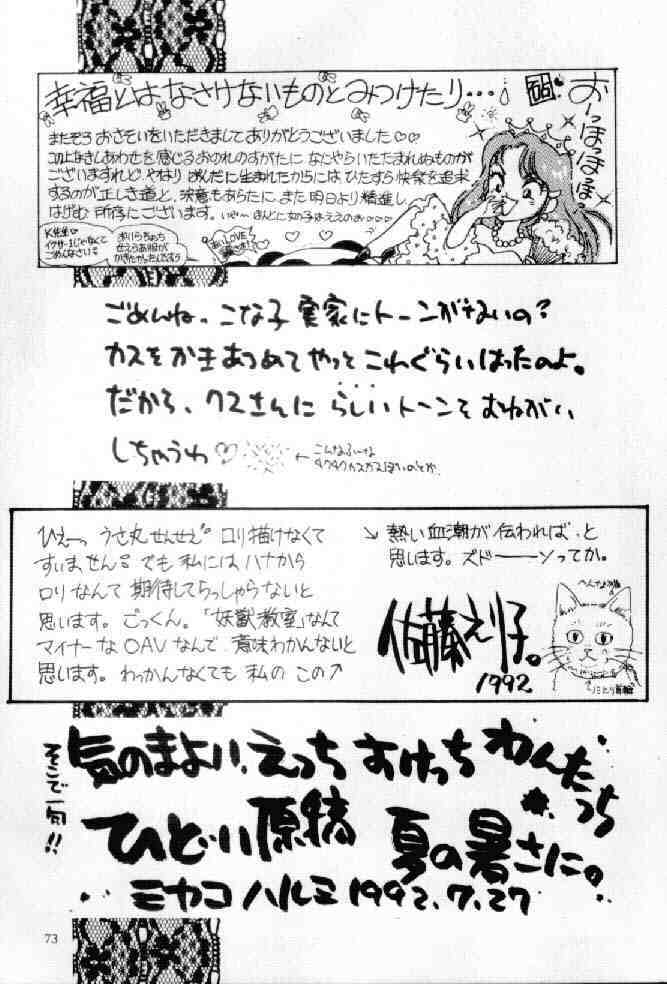 幸福とは、なさけないものとみつけたり…。
おーっほっほっほ
またぞろおさそいをいただきましてありがとうございました♡♡
このよなきしあわせを感じるおのれのすがたになにやらいたたまれぬものが
ございますれど、やはりおんなに生まれたからにはひたすら快楽を追求
するのが正しき道と、決意もあらたに、また明日より精進し
はげむ所存にございます。いやーほんとに女の子はええのお〜
K先生♡
イクサー1じゃなくて
ごめんなさい
おいらちゃっち
せえらあ服が
かきたかったんですう
LOVE
ごめんね。こな子実家にトーンがないの？
カスをかきあつめてやっとこれぐらいはったのよ。
だから、クスさんにらしいトーンをおねがい
しちゃうわ♡
←こんなふーな
カスカスっぽいのとか
ひえーっ うさ丸せんせえ。ロリ描けなくて
すいません。でも私にはハナから
ロリなんて期待してらっしゃらないと
思います。ごっくん。「妖獣教室」なんて
マイナーなOAVなんで、意味わかんないと
思います。わっかんなくても私のこの↗
↘熱い血潮が伝われば、と
思います。ズドーーンってか。
佐藤えり子。
1992
へんなねこ
ノミとり首輪
そこで一句!!
気のまよい、えっち すけっち わんたっち
ひどい原稿 夏の暑さに。
ミヤコハルミ 1992.7.27
73